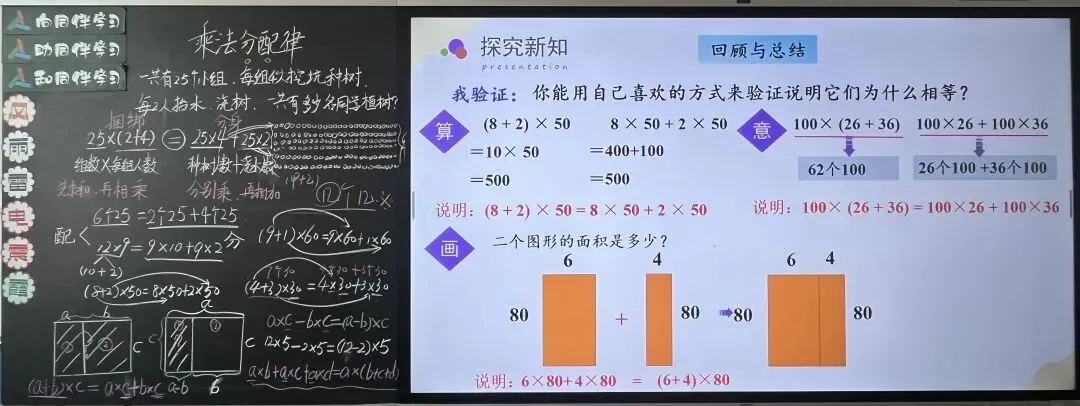 向同伴学习
助同伴学习
和同伴学习
风
雨
雷
电
震
霜
乘法分配律
一共有25个小组，每组4人挖坑种树，
每2人抬水、浇树，一共有多少名同学植树？
捆绑 分身
25×(2+4) = 25×4+25×2
组数×每组人数
先加,再相乘 分别乘,再相加
6个25 = 2个25+4个25
配 分
12×9 = 9×10+9×2
(9+1)×60=9×60+1×60
(10+2)
(8+2)×50=8×50+2×50
(4+3)×30=4×30+3×30
a b
a
c
c
a×c-b×c=(a-b)×c
12×5-2×5=(12-2)×5
a×b+a×c+a×d=a×(b+c+d)
(a+b)×c=a×c+b×c
a-b b
探究新知
presentation
回顾与总结
我验证：你能用自己喜欢的方式来验证说明它们为什么相等？
算
(8+2)×50 8×50+2×50
=10×50 =400+100
=500 =500
说明：(8+2)×50=8×50+2×50
意
100×(26+36) 100×26+100×36
62个100 26个100+36个100
说明：100×(26+36)=100×26+100×36
画
二个图形的面积是多少？
6 4 6 4
80 + 80 80 80
说明：6×80+4×80 = (6+4)×80